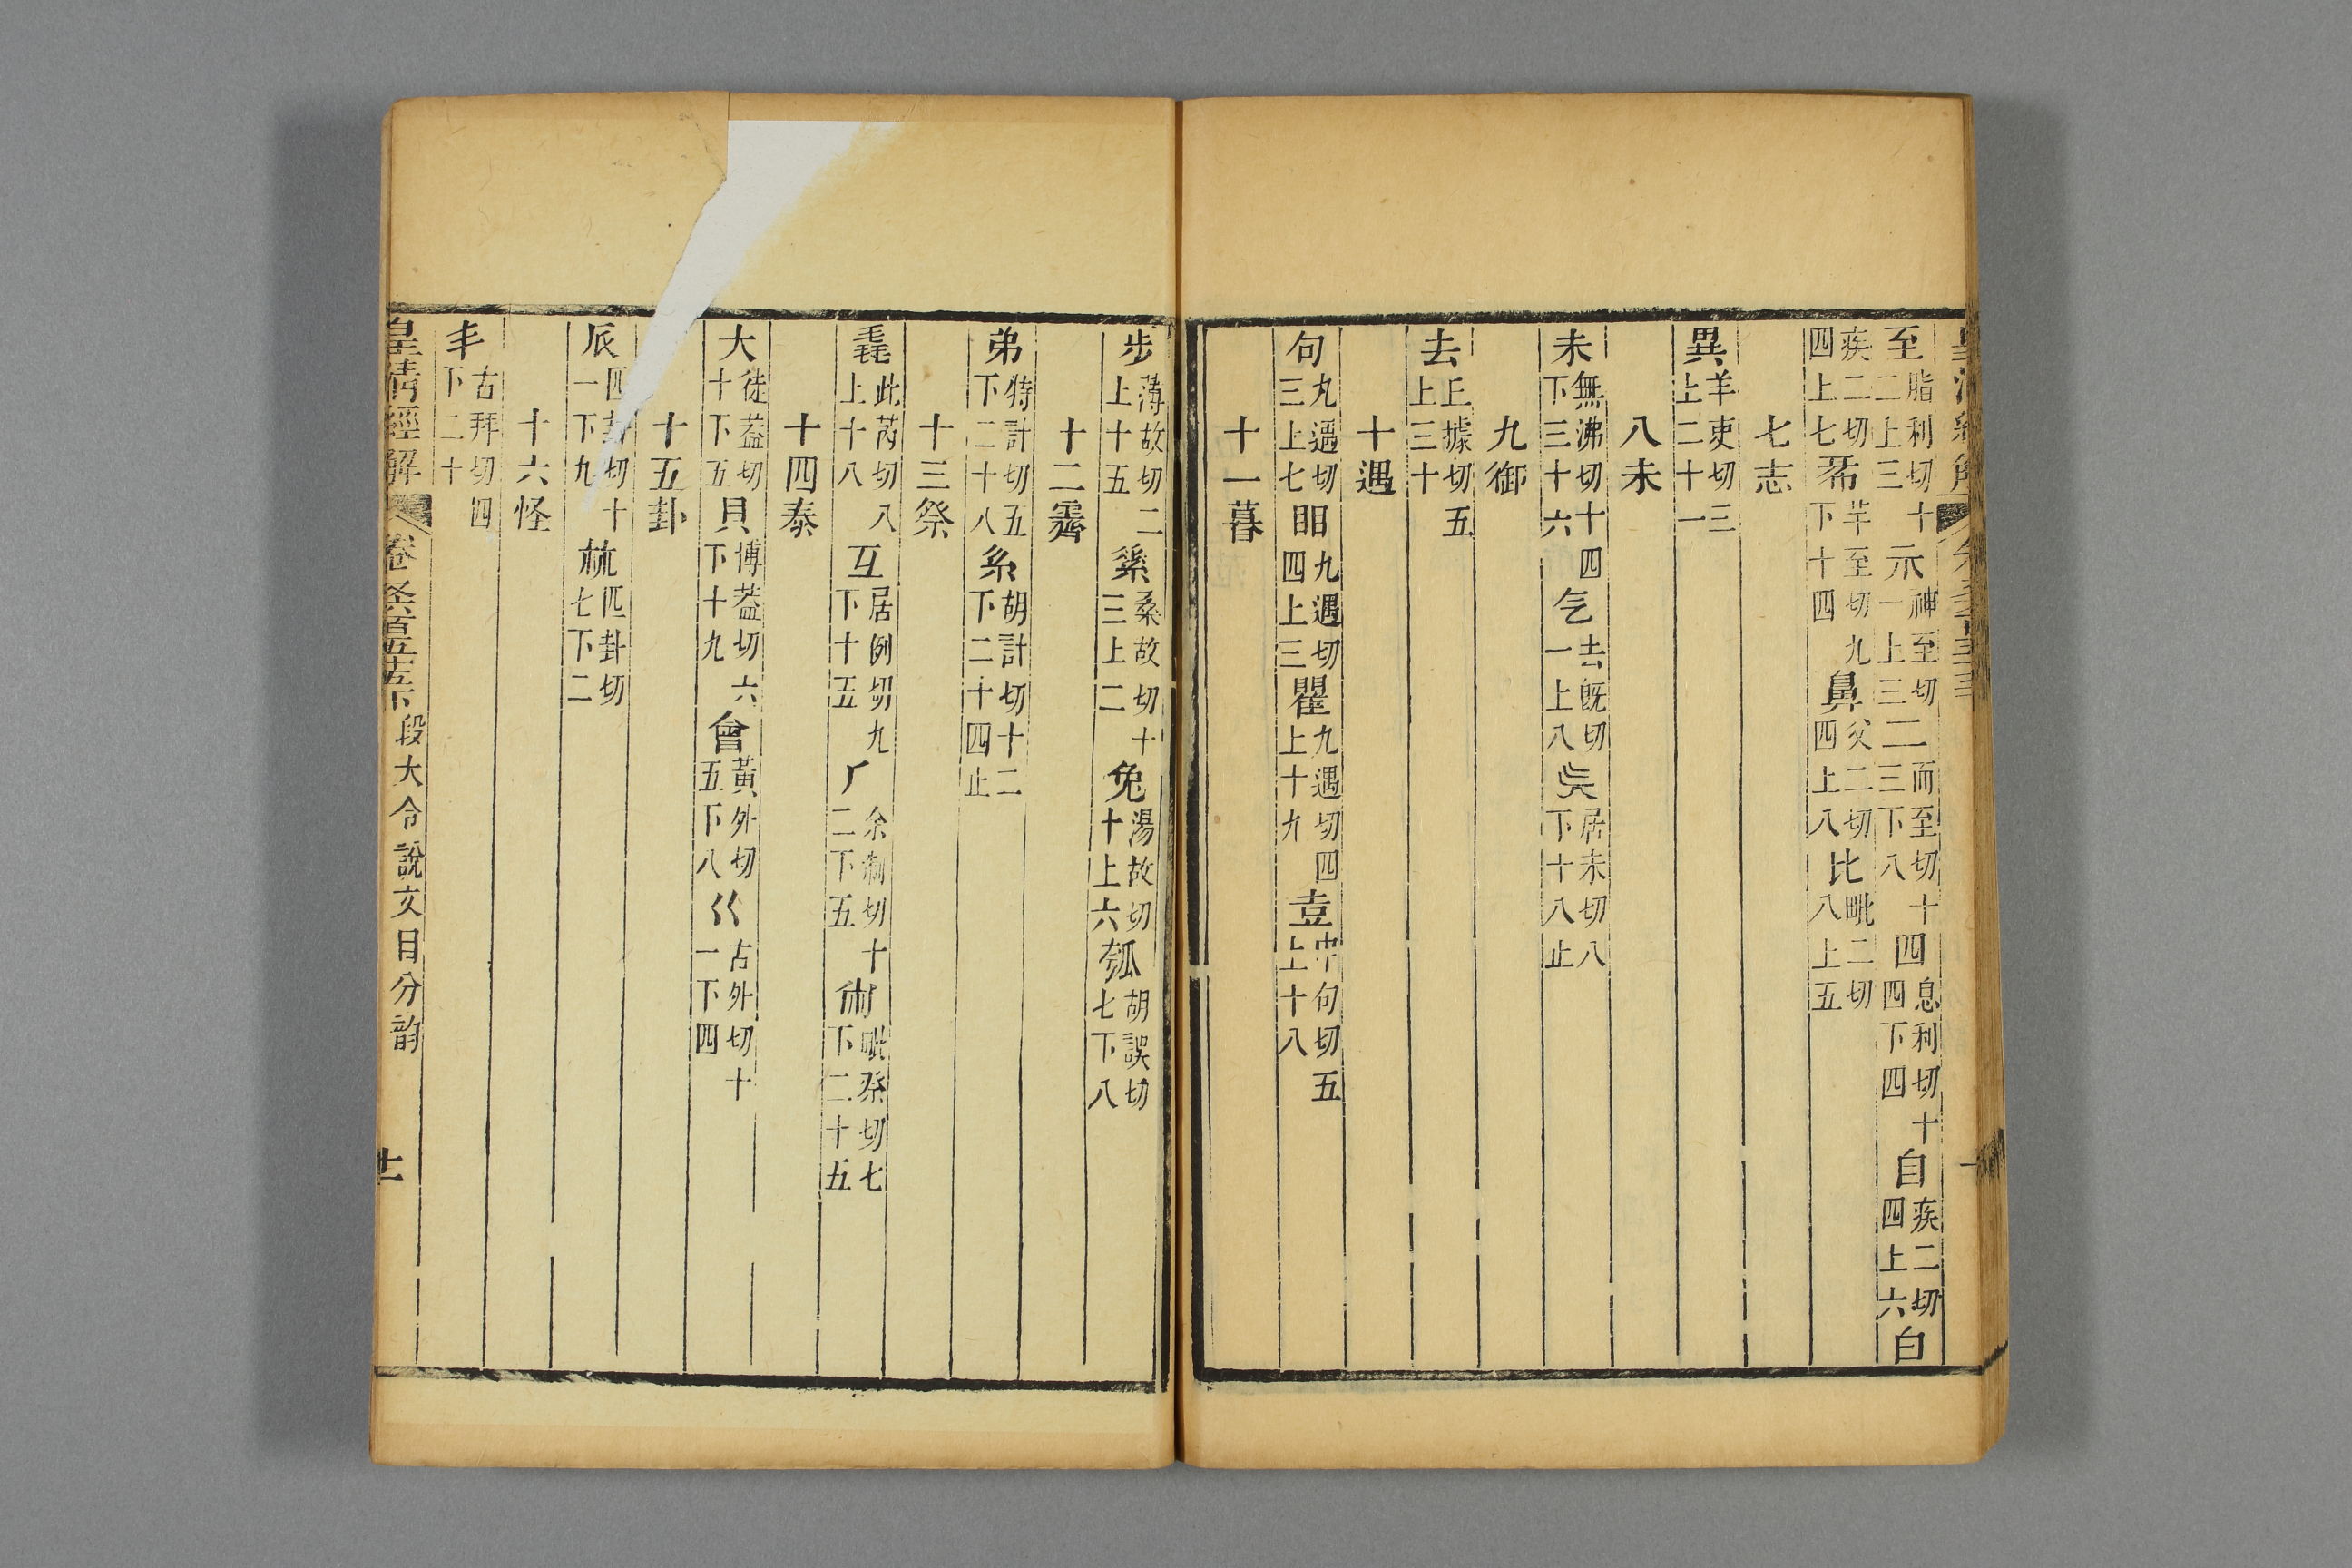 至脂利切十二上三示神至切一上三二而至切十三下八四息利切十四下四自疾二切四上六白
疾二切四上七㣇羊至切九下十四鼻父二切四上八比毗二切八上五
七志
異羊吏切三上二十一
八未
未無沸切十四下三十六气去旣切一上八旡居未切八下十八止
九御
去丘據切五上三十
十遇
句九遇切三上七䀠九遇切四上三瞿九遇切四上十九壴中句切五上十八
十一暮
步薄故切二上十五素桑故切十三上二兔湯故切十上六瓠胡誤切七下八
十二霽
弟特計切五下二十八系胡計切十二下二十四止
十三祭
毳此芮切八上十八彑居例切九下十五𠂆余制切十二下五㡀毗祭切七下二十五
十四泰
大徒蓋切十下五貝博蓋切六下十九會黃外切五下八巜古外切十一下四
十五卦
𠂢匹卦切十一下九𣏟匹卦切七下二
十六怪
丯古拜切四下二十
皇清經解 卷六百五十五下 段大令說文目分韵 十一